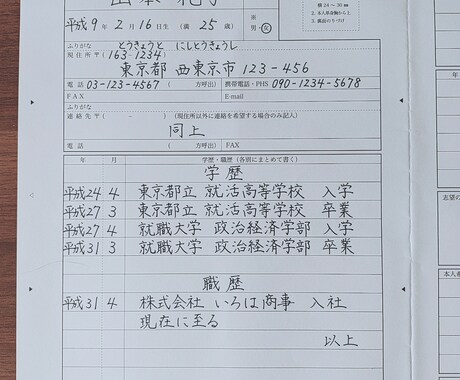 平成 9 年 2 月 16 日生 (満 25 歳) ※ 男・女
縦 24〜30 ㎜
2. 本人単身胸から上
3. 裏面のりづけ
ふりがな とうきょうと にしとうきょうし
現住所〒(163-1234)
東京都 西東京市 123-456
電話 03-123-4567 ( 方呼出) 携帯電話・PHS 090-1234-5678
FAX E-mail
ふりがな
連絡先〒( - ) (現住所以外に連絡を希望する場合のみ記入)
同上
電話 ( 方呼出) FAX
年 月 学歴・職歴(各別にまとめて書く)
学歴
平成24 4 東京都立 就活高等学校 入学
平成27 3 東京都立 就活高等学校 卒業
平成27 4 就職大学 政治経済学部 入学
平成31 3 就職大学 政治経済学部 卒業
職歴
平成31 4 株式会社 いろは商事 入社
現在に至る
以上
年
志望の
本人希